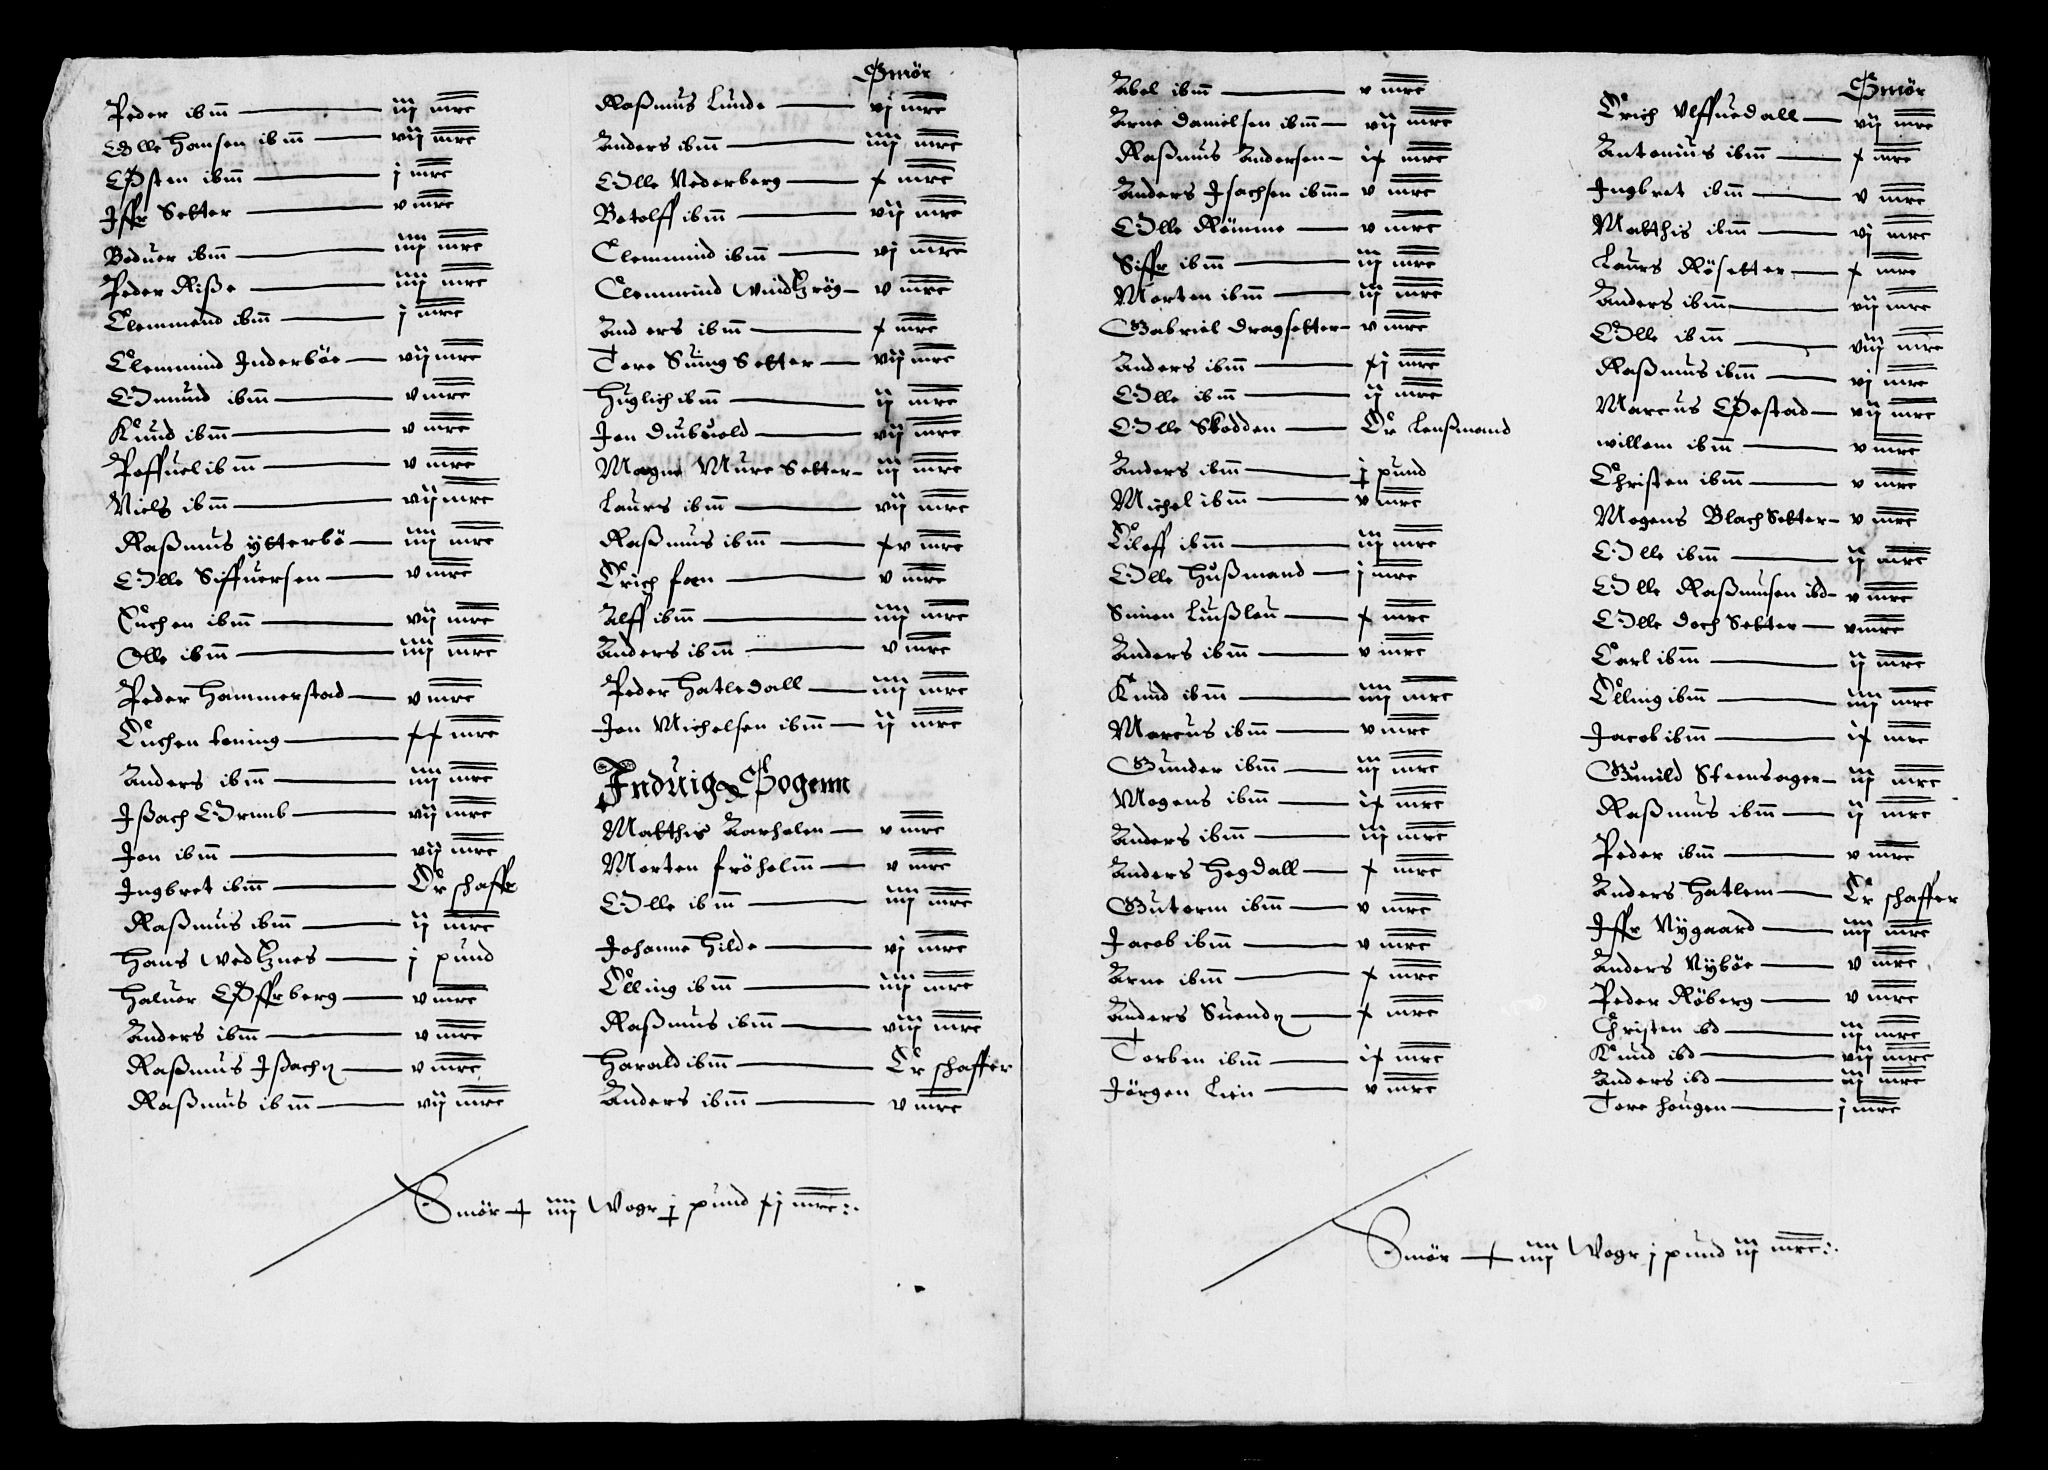 Peder ibm — iij mrc
Olle Hansen ibm — vij mrc
Østen ibm — j mrc
Iffr Setter — v mrc
Boduer ibm — iiij mrc
Peder Riße — iiij mrc
Clemmend ibm — j mrc
Clemmind Inderböe — vij mrc
Omund ibm — v mrc
Knud ibm — v mrc
Poffuel ibm — v mrc
Niels ibm — vij mrc
Raßmus ytterbö — iiij mrc
Olle Siffuersen — v mrc
Euchen ibm — vij mrc
Olle ibm — iiij mrc
Peder Hammerstad — v mrc
Euchen toning — xx mrc
Anders ibm — iiij mrc
Ißach Grimb — vij mrc
Jon ibm — vij mrc
Ingbret ibm — Er schaffr
Raßmus ibm — ij mrc
Hans Wedtznes — j pund
Haluor Øffrberg — v mrc
Anders ibm — v mrc
Raßmus Ißach — v mrc
Raßmus ibm — vij mrc
Smör
Raßmus Lunde — vj mrc
Anders ibm — iiij mrc
Olle Nederberg — x mrc
Botolff ibm — vij mrc
Clemmind ibm — vj mrc
Clemmind Windtzrög — v mrc
Anders ibm — x mrc
Tore Suing Setter — vij mrc
Huglich ibm — ij mrc
Jon Dubuold — vij mrc
Mogns Mure Setter — iij mrc
Laurs ibm — vij mrc
Raßmus ibm — xv mrc
Erich foen — v mrc
Alff ibm — iiij mrc
Anders ibm — v mrc
Peder Hatledall — iiij mrc
Jon Michelsen ibm — ij mrc
Induig Sogenn
Matthis Aarholen — v mrc
Morten fröholm — v mrc
Olle ibm — iiij mrc
Johanne Hilde — vj mrc
Elling ibm — iiij mrc
Raßmus ibm — viij mrc
Harald ibm — Er schaffer
Anders ibm — v mrc
Smör iiij Wogr j pund xj mrc
Abel ibm — v mrc
Arne Danielsen ibm — vij mrc
Raßmus Andersen — ix mrc
Anders Isachsen ibm — v mrc
Olle Römme — v mrc
Siffr ibm — iij mrc
Morten ibm — iij mrc
Gabriel Dragsetter — v mrc
Anders ibm — xj mrc
Olle ibm — ij mrc
Olle Skodden — Er Lenßmand
Anders ibm — j pund
Michel ibm — v mrc
Eiloff ibm — iij mrc
Olle Hußmand — j mrc
Simen Lußleu — x mrc
Anders ibm — v mrc
Knud ibm — iiij mrc
Marcus ibm — v mrc
Gunder ibm — iij mrc
Mogens ibm — ix mrc
Anders ibm — iij mrc
Anders Hegdall — x mrc
Gutorm ibm — v mrc
Jacob ibm — v mrc
Arne ibm — x mrc
Anders Suend — x mrc
Torben ibm — ix mrc
Jörgen Lien — v mrc
Smör
Erich Ulffuedall — vij mrc
Antonius ibm — x mrc
Ingbret ibm — v mrc
Matthis ibm — vj mrc
Laurs Rösetter — x mrc
Anders ibm — vij mrc
Olle ibm — viij mrc
Raßmus ibm — vj mrc
Marcus Opstad — vij mrc
Willem ibm — v mrc
Christen ibm — v mrc
Mogens Blach Setter — v mrc
Olle ibm — ij mrc
Olle Raßmusen ibd — v mrc
Olle Doch Setter — v mrc
Carl ibm — ij mrc
Elling ibm — iiij mrc
Jacob ibm — ix mrc
Gunild Steensager — iij mrc
Raßmus ibm — ij mrc
Peder ibm — v mrc
Anders Hatlem — Er schaffer
Iffr Nygaard — iiij mrc
Anders Nyböe — v mrc
Peder Röberg — v mrc
Christen ibd — iij mrc
Knud ibd — vij mrc
Anders ibd — iij mrc
Tore Hougen — j mrc
Smör iiij Wogr j pund iij mrc